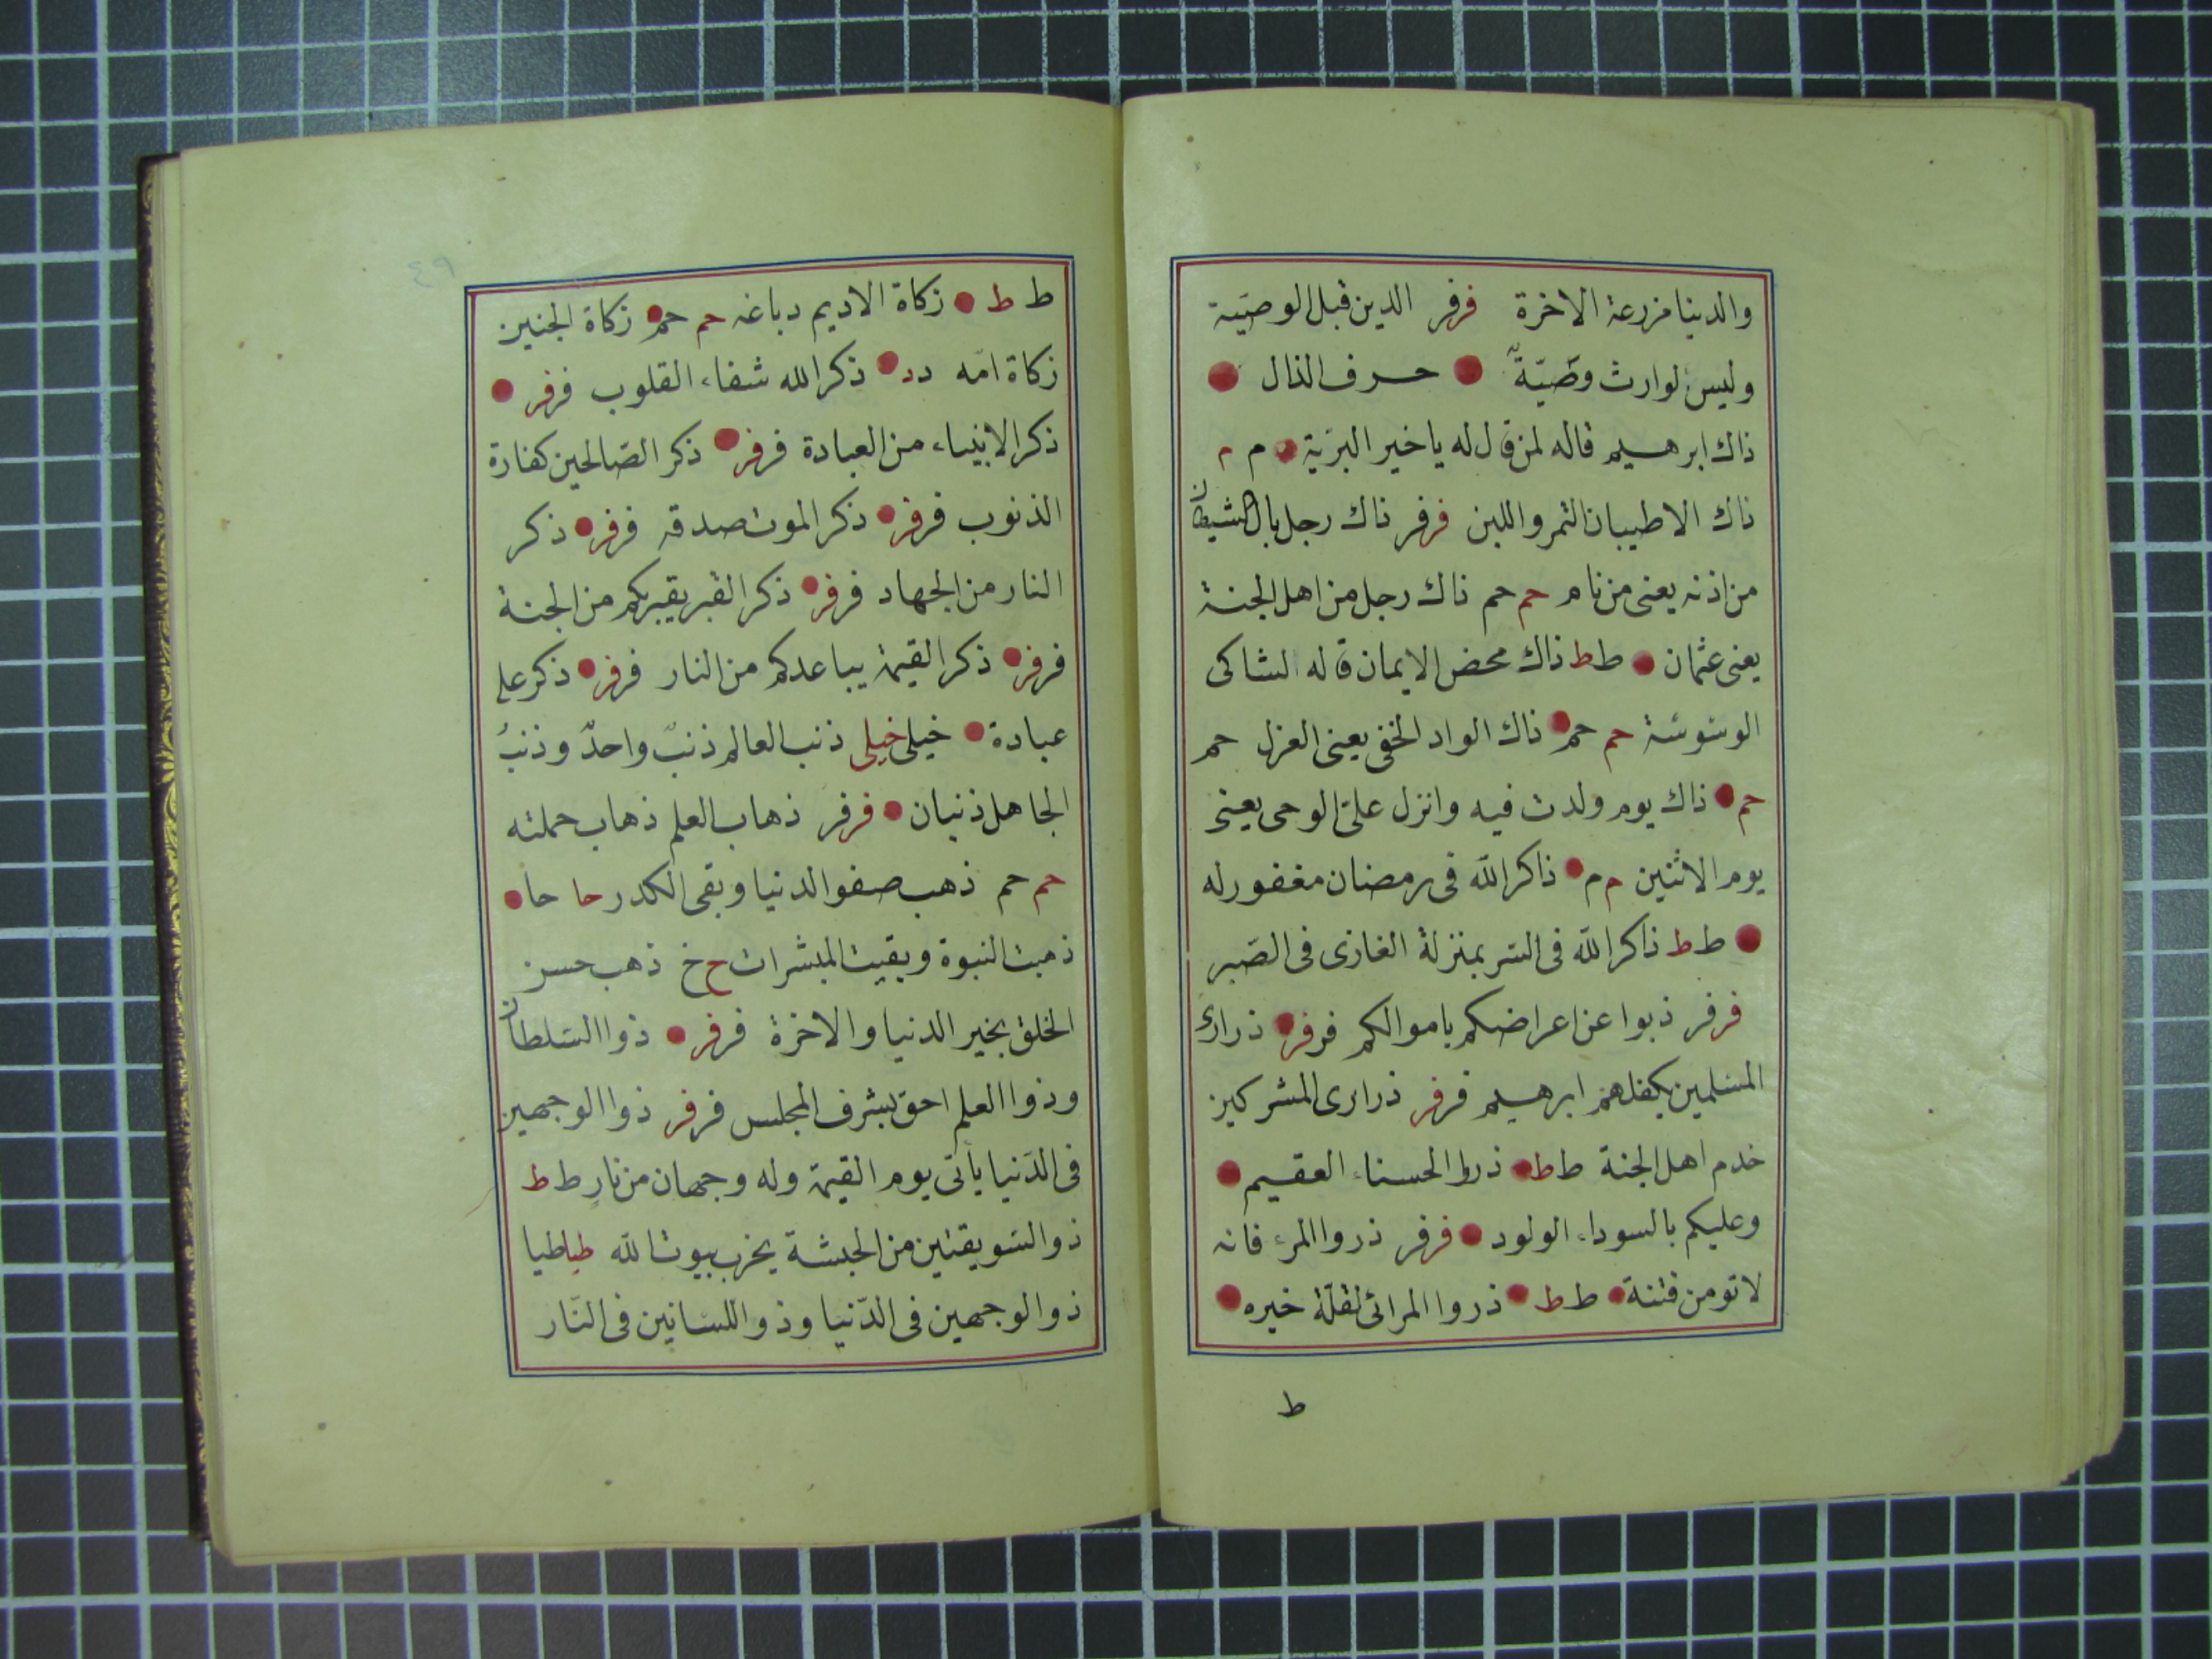 والدنيا مزرعة الاخرة فرفر الدين قبل الوصيّة
وليس لوارث وصّيّة حرف الذال
ذاك ابرهيم قاله لمن قال له يا خير البريّة م م
ذاك الاطيبان التمر واللبن فرفر ذاك رجل بال الشيطان
من اذنه يعنى من نام حم حم ذاك رجل من اهل الجنة
يعنى عثمان ط ط ذاك محض الايمان قاله لشاكى
الوسوسة حم حم ذاك الواد الخفى يعنى العزل حم
حم ذاك يوم ولدت فيه وانزل علىّ الوحى يعنى
يوم الاثنين م م ذاكر الله فى رمضان مغفور له
ط ط ذاكر الله فى السر بمنزلة الغازى فى الصّبر
فرفر ذبوا عن اعراضكم باموالكم فرفر ذرارى
المسلمين يكفلهم ابرهيم فرفر ذرارى المشركين
خدم اهل الجنة ط ط ذروا الحسناء العقيم
وعليكم بالسوداء الولود فرفر ذروا المرء فانه
لا تومن فتنة ط ط ذروا المرائى لقلّة خيره
ط
٤٩
ط ط زكاة الاديم دباغه حم حم زكاة الجنين
زكاة امّه د د ذكر الله شفاء القلوب فرفر
ذكر الانبياء من العبادة فرفر ذكر الصّالحين كفارة
الذنوب فرفر ذكر الموت صدقه فرفر ذكر
النار من الجهاد فرفر ذكر القبر يقبربكم من الجنة
فرفر ذكر القيمة يباعدكم من النار فرفر ذكر على
عبادة خيلى خيلى ذنب العالم ذنبٌ واحدٌ وذنبُ
الجاهل ذنبان فرفر ذهاب العلم ذهاب حملته
حم حم ذهب صفو الدنيا وبقى الكدر حا حا
ذهبت النبوة وبقيت المبشرات خ خ ذهب حسن
الخلق بخير الدنيا والاخرة فرفر ذوا السّلطان
وذوا العلم احق بشرف المجلس فرفر ذوا الوجهين
فى الدّنيا يأتى يوم القيمة وله وجهان من نارٍ ط ط
ذو السّويقتين من الحبشة يخرب بيوت الله طيا طيا
ذو الوجهين فى الدّنيا وذو اللسّانين فى النّار